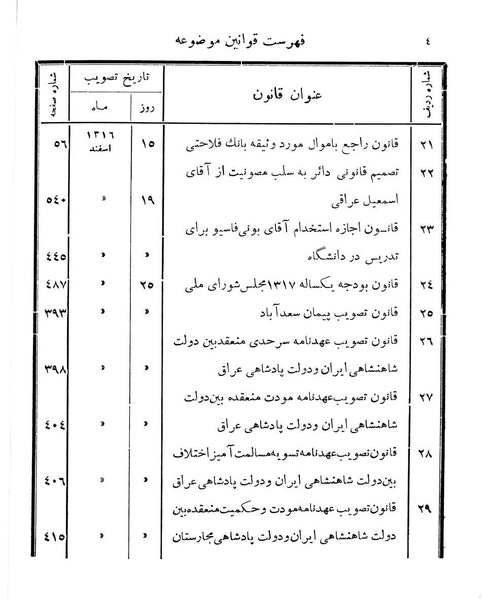 ٤ فهرست قوانین موضوعه
شماره ردیف عنوان قانون تاریخ تصویب شماره صفحه
روز ماه
۲۱ قانون راجع باموال مورد وثیقه بانك فلاحتی ۱۵ ۱۳۱۶ اسفند ۵۶
۲۲ تصمیم قانونی دائر به سلب مصونیت از آقای
اسمعیل عراقی ۱۹ » ٥٤٠
۲۳ قانون اجازه استخدام آقای بونی‌فاسیو برای
تدریس در دانشگاه » » ٤٤٥
۲٤ قانون بودجه یکساله ۱۳۱۷ مجلس شورای ملی ۲۵ » ٤٨٧
۲۵ قانون تصویب پیمان سعدآباد » » ۳۹۳
۲۶ قانون تصویب عهدنامه سرحدی منعقد بین دولت
شاهنشاهی ایران و دولت پادشاهی عراق » » ۳۹۸
۲۷ قانون تصویب عهدنامه مودت منعقده بین دولت
شاهنشاهی ایران و دولت پادشاهی عراق » » ٤٠٤
۲۸ قانون تصویب عهدنامه تسویه مسالمت آمیز اختلاف
بین دولت شاهنشاهی ایران و دولت پادشاهی عراق » » ٤٠٦
۲۹ قانون تصویب عهدنامه مودت و حکمیت منعقده بین
دولت شاهنشاهی ایران و دولت پادشاهی مجارستان » » ٤١٥